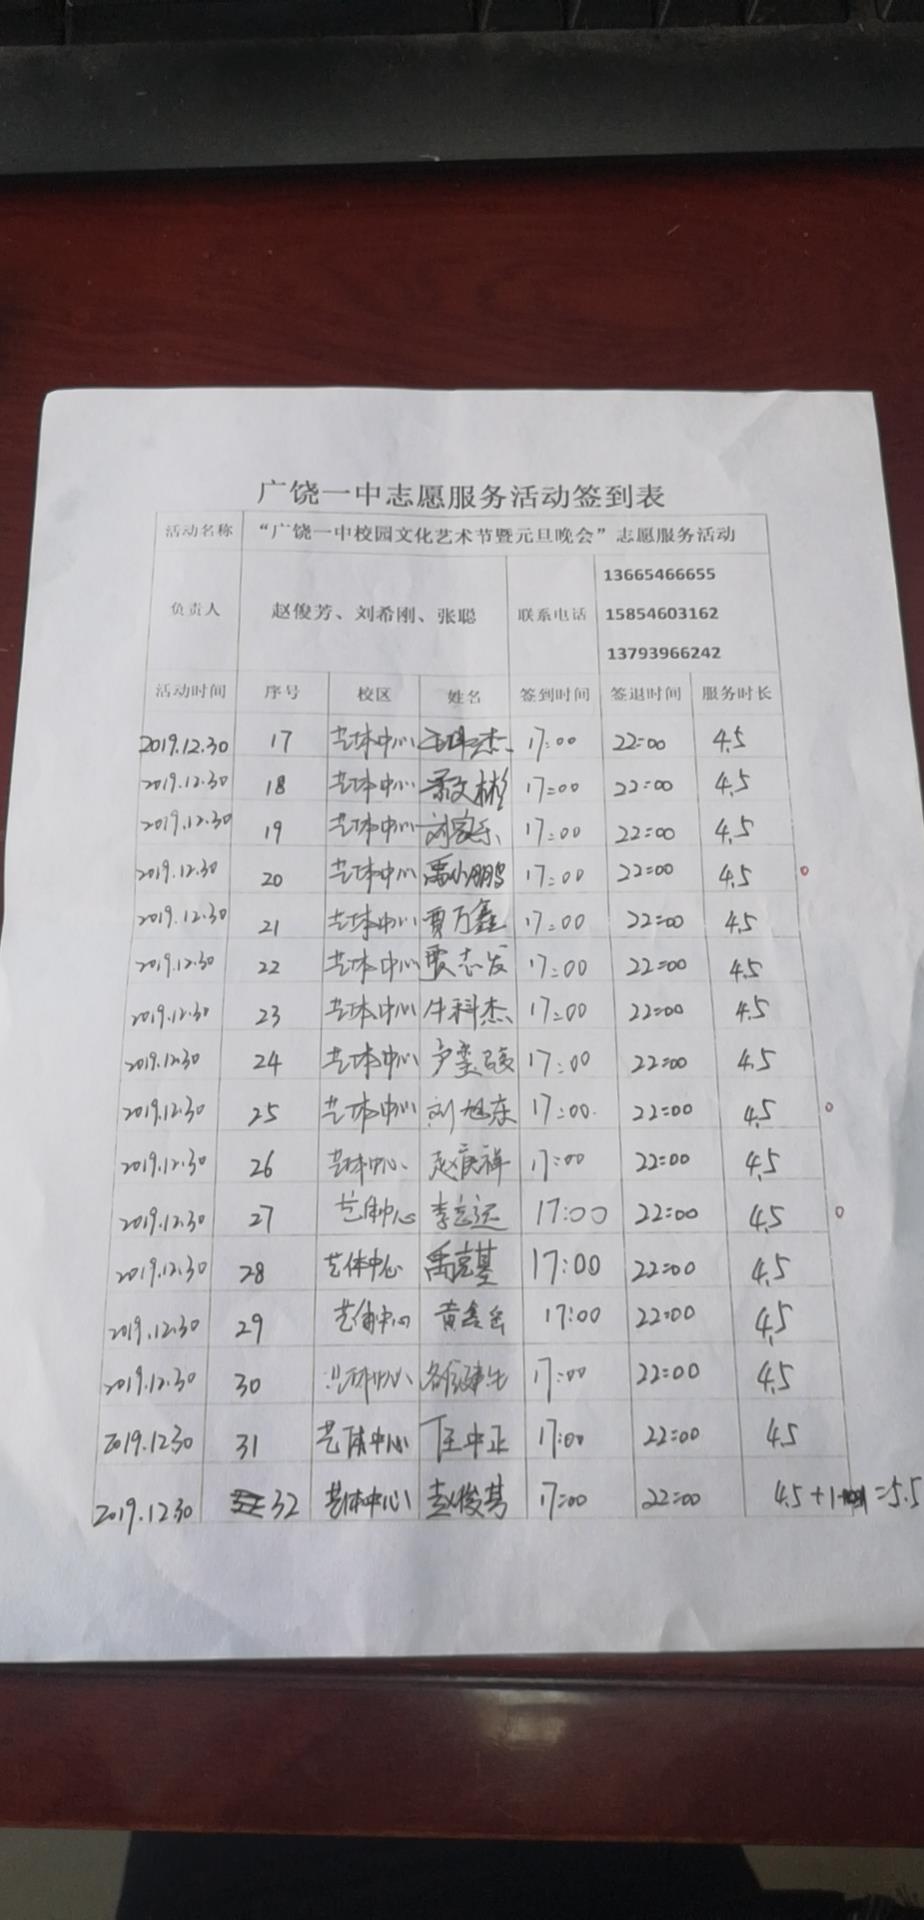 广饶一中志愿服务活动签到表
活动名称 “广饶一中校园文化艺术节暨元旦晚会”志愿服务活动
负责人 赵俊芳、刘希刚、张聪 联系电话 13665466655
15854603162
13793966242
活动时间 序号 校区 姓名 签到时间 签退时间 服务时长
2019.12.30 17 艺体中心 17:00 22:00 4.5
2019.12.30 18 艺体中心 17:00 22:00 4.5
2019.12.30 19 艺体中心 刘家乐 17:00 22:00 4.5
2019.12.30 20 艺体中心 禹小鹏 17:00 22:00 4.5
2019.12.30 21 艺体中心 贾万鑫 17:00 22:00 4.5
2019.12.30 22 艺体中心 贾志发 17:00 22:00 4.5
2019.12.30 23 艺体中心 牛科杰 17:00 22:00 4.5
2019.12.30 24 艺体中心 17:00 22:00 4.5
2019.12.30 25 艺体中心 刘旭东 17:00 22:00 4.5
2019.12.30 26 艺体中心 赵庆祥 17:00 22:00 4.5
2019.12.30 27 艺体中心 李志远 17:00 22:00 4.5
2019.12.30 28 艺体中心 禹克基 17:00 22:00 4.5
2019.12.30 29 艺体中心 黄鑫岳 17:00 22:00 4.5
2019.12.30 30 艺体中心 17:00 22:00 4.5
2019.12.30 31 艺体中心 任中正 17:00 22:00 4.5
2019.12.30 32 艺体中心 赵俊芳 17:00 22:00 4.5+1=5.5